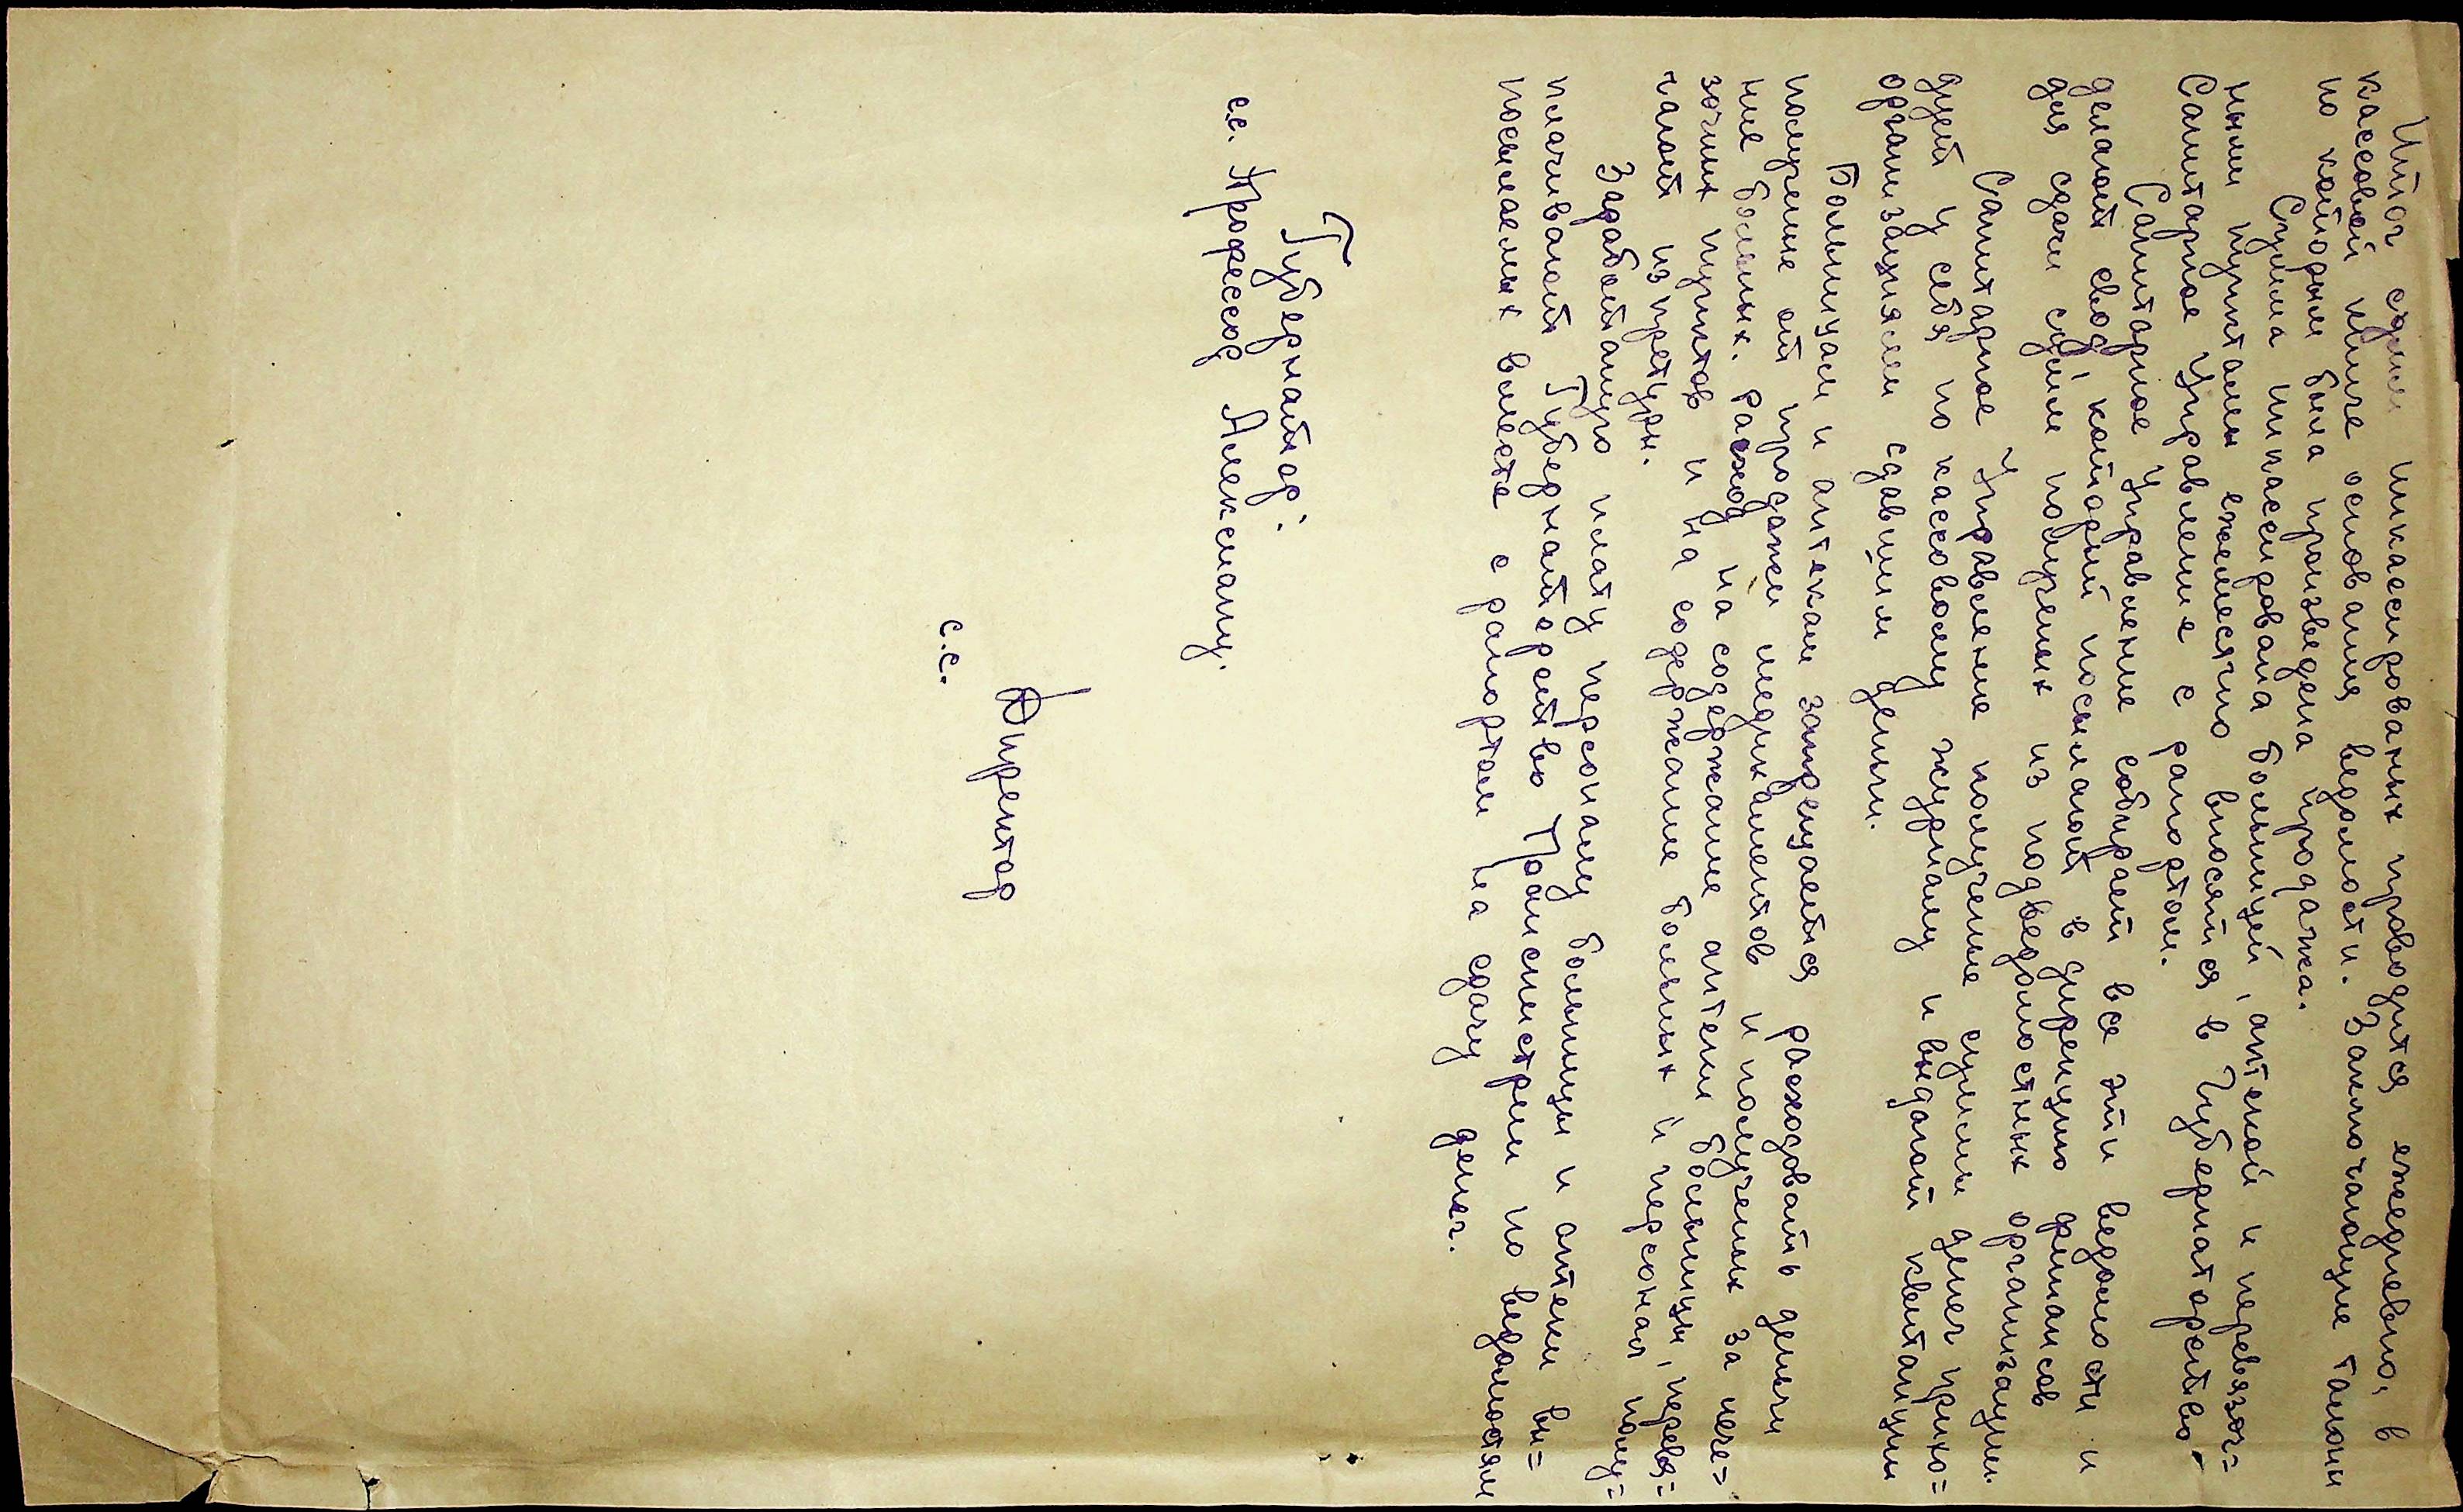 Итог сумм инкасированых проводится ежедневно, в
кассовой книге основания ведомости. Заключающие талоны
по которым была произведена продажа.
Сумма инкасирована больницей, аптекой и перевязоч=
ными пунктамы ежемесячно вносятся в Губернаторство-
Санитарное Управление с рапортом.
Санитарное Управление собирает все эти ведомости и
делают свод, который посылают в дирекцию финансов
для сдачи сумм полученых из подведомостных организации.
Санитарное Управление получение суммы денег прихо=
дует у себя по кассовому журналу и выдают квитанции
организациям сдавшим деньги.
Больницам и аптекам запрещается расходовать деньги
получение от продажи медикаментов и полученых за лече=
ние больных. Расход на содержание аптеки больницы, перевя=
зочних пунктов и на содержание больных и персонал полу=
чают из претуры.
Заработанную плату персоналу больницы и аптеки вы=
плачивают Губернаторство Транснистрии по ведомостям
посылаемых вместе с рапортом на сдачу денег.
Губернатор:
с.с. Профессор Алексяну.
Директор
с.с.